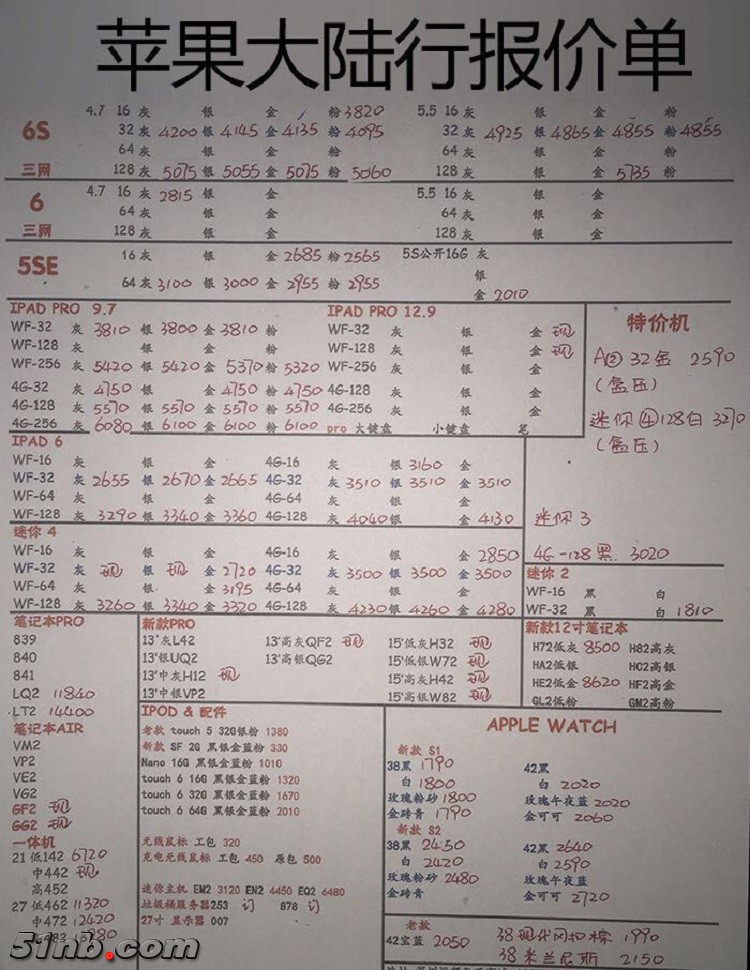 苹果大陆行报价单
6S
三网
4.7 16 灰 银 金 粉 3820
32 灰 4200 银 4145 金 4135 粉 4095
64 灰 银 金 粉
128 灰 5075 银 5055 金 5075 粉 5060
5.5 16 灰 银 金 粉
32 灰 4925 银 4865 金 4855 粉 4855
64 灰 银 金 粉
128 灰 银 金 5735 粉
6
三网
4.7 16 灰 2815 银 金
64 灰 银 金
128 灰 银 金
5.5 16 灰 银 金
64 灰 银 金
128 灰 银 金
5SE
16 灰 银 金 2685 粉 2565
64 灰 3100 银 3000 金 2955 粉 2955
5S公开16G 灰
银
金 2010
IPAD PRO 9.7
WF-32 灰 3810 银 3800 金 3810 粉
WF-128 灰 银 金 粉
WF-256 灰 5420 银 5420 金 5370 粉 5320
4G-32 灰 4750 银 金 4750 粉 4750
4G-128 灰 5570 银 5570 金 5570 粉 5570
4G-256 灰 6080 银 6100 金 6100 粉 6100
IPAD PRO 12.9
WF-32 灰 银 金 现
WF-128 灰 银 金 现
WF-256 灰 银 金
4G-128 灰 银 金
4G-256 灰 银 金
pro 大键盘 小键盘 笔
特价机
A② 32金 2590
(盒压)
迷你④128白 3270
(盒压)
迷你3
4G-128黑 3020
IPAD 6
WF-16 灰 银 金
WF-32 灰 2655 银 2670 金 2665
WF-64 灰 银 金
WF-128 灰 3290 银 3340 金 3360
4G-16 灰 银 3160 金
4G-32 灰 3510 银 3510 金 3510
4G-64 灰 银 金
4G-128 灰 4040 银 金 4130
迷你 4
WF-16 灰 银 金
WF-32 灰 现 银 现 金 2720
WF-64 灰 银 金 3195
WF-128 灰 3260 银 3340 金 3320
4G-16 灰 银 金 2850
4G-32 灰 3500 银 3500 金 3500
4G-64 灰 银 金
4G-128 灰 4230 银 4260 金 4280
迷你 2
WF-16 黑 白
WF-32 黑 白 1810
笔记本PRO
839
840
841
LQ2 11840
LT2 14400
笔记本AIR
VM2
VP2
VE2
VG2
GF2 现
GG2 现
一体机
21 低142 6720
中442 现
高452
27 低462 11320
中472 12420
482
新款PRO
13"灰L42
13"银UQ2
13"中灰H12 现
13"中银VP2
13"高灰QF2 现
13"高银QG2
15"低灰H32 现
15"低银W72 现
15"高灰H42 现
15"高银W82 现
新款12寸笔记本
H72低灰 8500 H82高灰
HA2低银 HC2高银
HE2低金 8620 HF2高金
GL2低粉 GM2高粉
IPOD & 配件
老款 touch 5 32G银粉 1380
新款 SF 2G 黑银金蓝粉 330
Nano 16G 黑银金蓝粉 1010
touch 6 16G 黑银金蓝粉 1320
touch 6 32G 黑银金蓝粉 1670
touch 6 64G 黑银金蓝粉 2010
无线鼠标 工包 320
充电无线鼠标 工包 450 原包 500
迷你主机 EM2 3120 EN2 4450 EQ2 6480
垃圾桶服务器253 订 878 订
27寸 显示器 007
APPLE WATCH
新款 S1
38黑 1790
白 1800
玫瑰粉砂 1800
金砖青 1790
42黑
白 2020
玫瑰午夜蓝 2020
金可可 2060
新款 S2
38黑 2450
白 2420
玫瑰粉砂 2480
金砖青
42黑 2640
白 2590
玫瑰午夜蓝
金可可 2720
老款
42宝蓝 2050
38现代风扣棕 1990
38米兰尼斯 2150
51nb.com